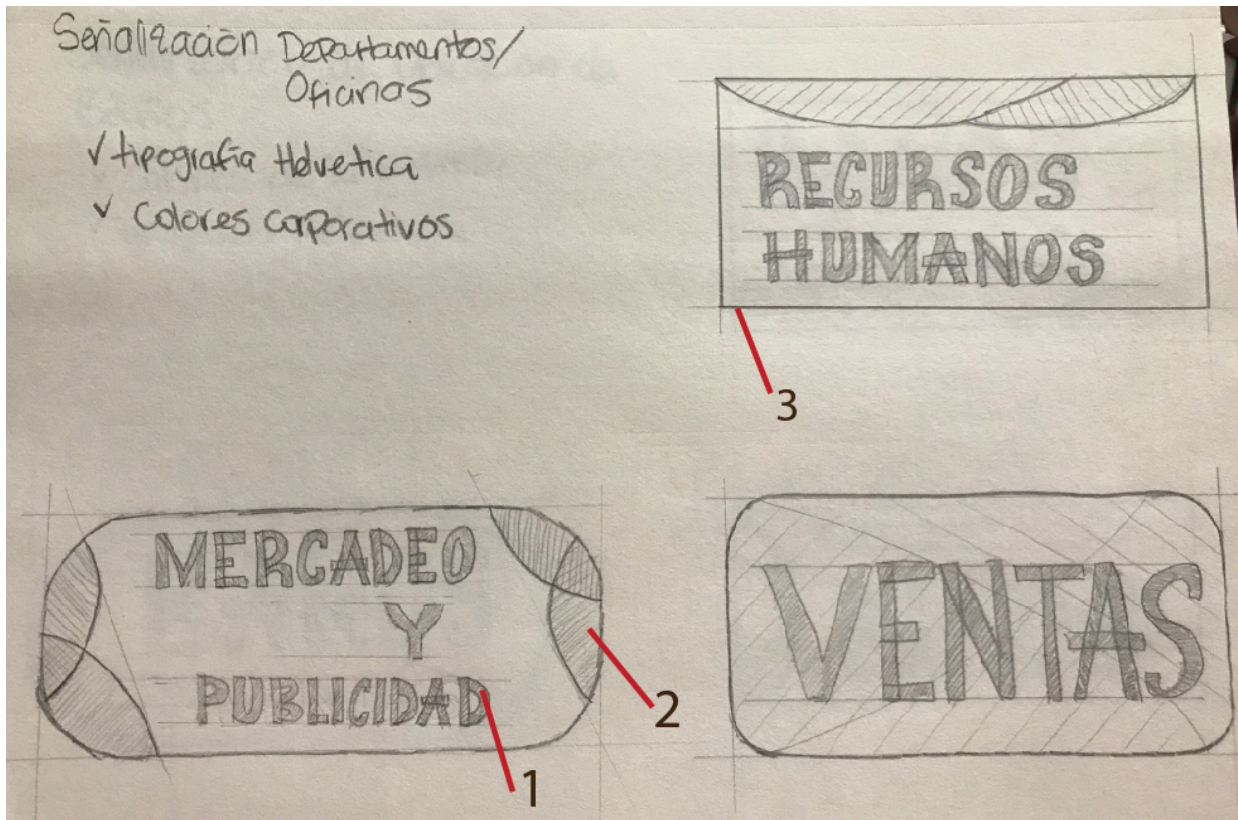 Señalización Departamentos/
Oficinas
✓ tipografía Helvetica
✓ Colores corporativos
RECURSOS
HUMANOS
3
MERCADEO
Y
PUBLICIDAD
1
2
VENTAS